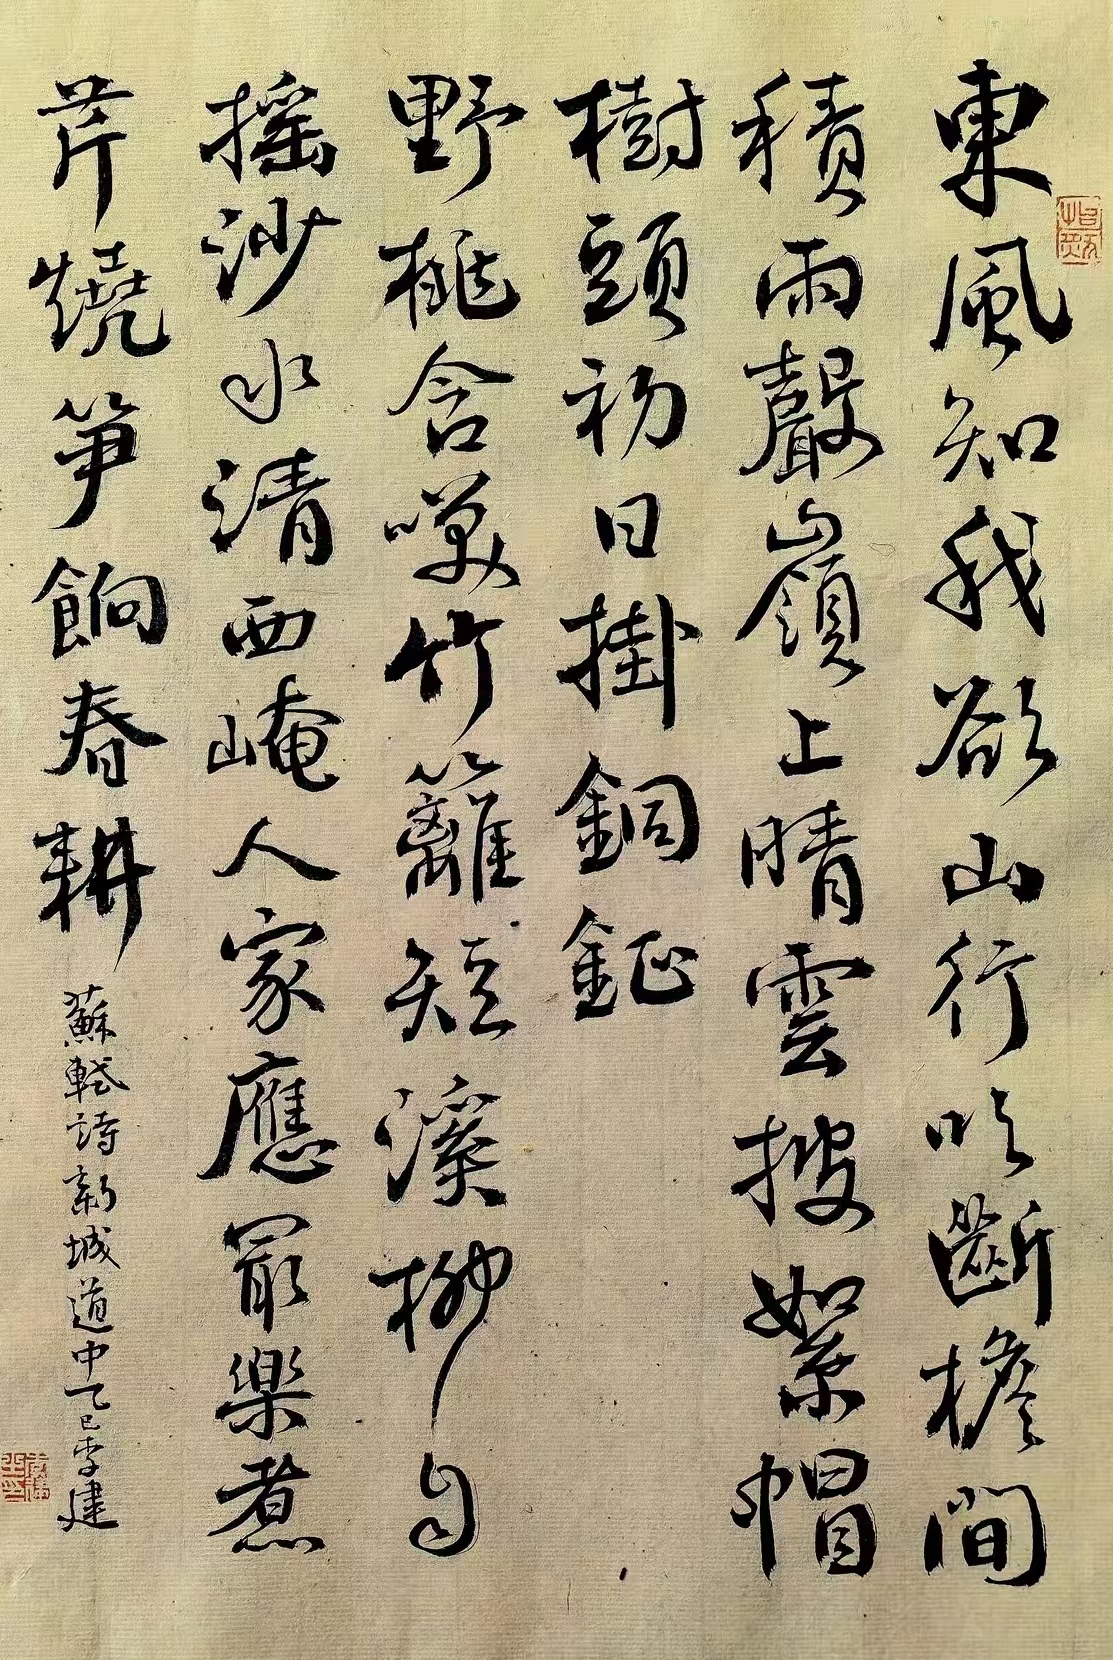 東風知我欲山行吹斷檐間
積雨聲嶺上晴雲披絮帽
樹頭初日掛銅鉦
野桃含咲竹籬短溪柳自
摇沙水清西崦人家應冣樂煮
芹燒笋餉春耕
蘇軾詩新城道中乙巳李建